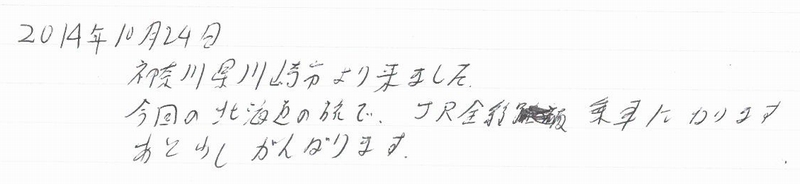 2014年10月24日
神奈川県川崎市より来ました。
今回の北海道の旅で、JR全線 乗車になります
あと少しがんばります。